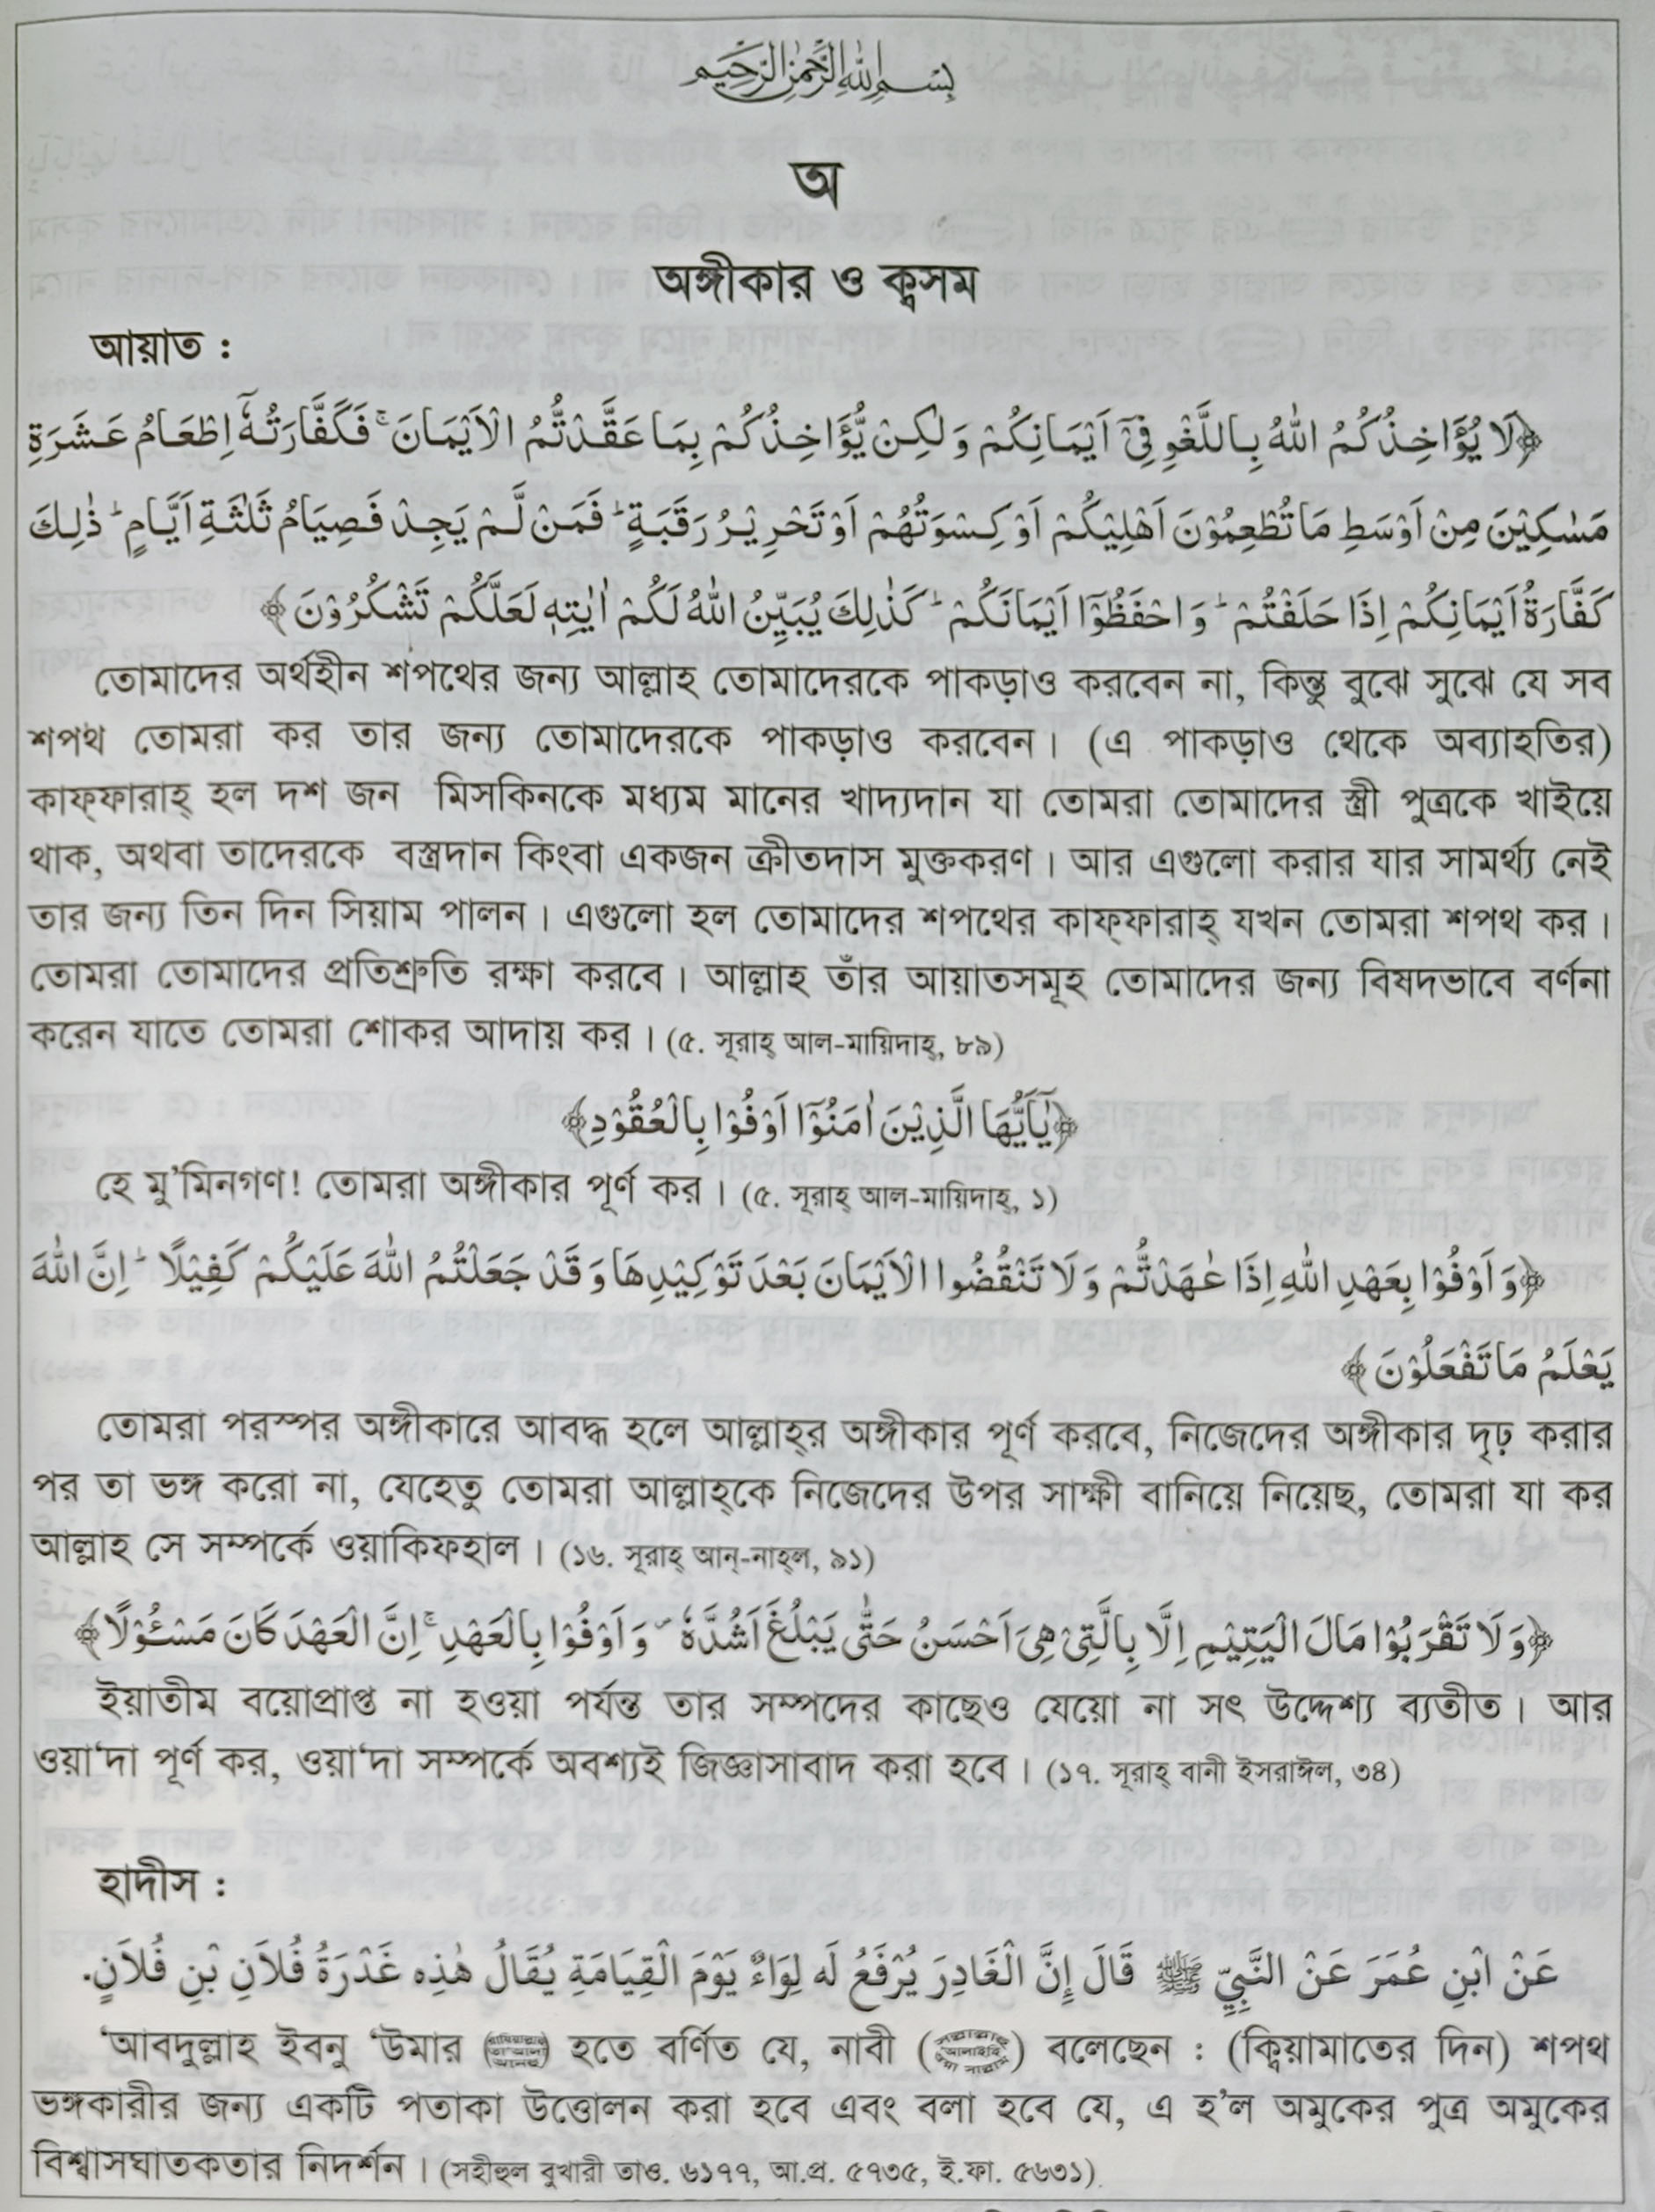 بِسْمِ اللهِ الرَّحْمٰنِ الرَّحِيْمِ
অ
অঙ্গীকার ও ক্বসম
আয়াত :
﴿لَا يُؤَاخِذُكُمُ اللهُ بِاللَّغْوِ فِيْٓ اَيْمَانِكُمْ وَلٰكِنْ يُّؤَاخِذُكُمْ بِمَا عَقَّدْتُّمُ الْاَيْمَانَ ۚ فَكَفَّارَتُهٗٓ اِطْعَامُ عَشَرَةِ
مَسٰكِيْنَ مِنْ اَوْسَطِ مَا تُطْعِمُوْنَ اَهْلِيْكُمْ اَوْ كِسْوَتُهُمْ اَوْ تَحْرِيْرُ رَقَبَةٍ ؕ فَمَنْ لَّمْ يَجِدْ فَصِيَامُ ثَلٰثَةِ اَيَّامٍ ؕ ذٰلِكَ
كَفَّارَةُ اَيْمَانِكُمْ اِذَا حَلَفْتُمْ ؕ وَاحْفَظُوْٓا اَيْمَانَكُمْ ؕ كَذٰلِكَ يُبَيِّنُ اللهُ لَكُمْ اٰيٰتِهٖ لَعَلَّكُمْ تَشْكُرُوْنَ﴾
তোমাদের অর্থহীন শপথের জন্য আল্লাহ তোমাদেরকে পাকড়াও করবেন না, কিন্তু বুঝে সুঝে যে সব
শপথ তোমরা কর তার জন্য তোমাদেরকে পাকড়াও করবেন। (এ পাকড়াও থেকে অব্যাহতির)
কাফ্ফারাহ্ হল দশ জন মিসকিনকে মধ্যম মানের খাদ্যদান যা তোমরা তোমাদের স্ত্রী পুত্রকে খাইয়ে
থাক, অথবা তাদেরকে বস্ত্রদান কিংবা একজন ক্রীতদাস মুক্তকরণ। আর এগুলো করার যার সামর্থ্য নেই
তার জন্য তিন দিন সিয়াম পালন। এগুলো হল তোমাদের শপথের কাফ্ফারাহ্ যখন তোমরা শপথ কর।
তোমরা তোমাদের প্রতিশ্রুতি রক্ষা করবে। আল্লাহ তাঁর আয়াতসমূহ তোমাদের জন্য বিষদভাবে বর্ণনা
করেন যাতে তোমরা শোকর আদায় কর। (৫. সূরাহ্ আল-মায়িদাহ্, ৮৯)
﴿يٰٓاَيُّهَا الَّذِيْنَ اٰمَنُوْٓا اَوْفُوْا بِالْعُقُوْدِ﴾
হে মু’মিনগণ! তোমরা অঙ্গীকার পূর্ণ কর। (৫. সূরাহ্ আল-মায়িদাহ্, ১)
﴿وَاَوْفُوْا بِعَهْدِ اللهِ اِذَا عٰهَدْتُّمْ وَلَا تَنْقُضُوا الْاَيْمَانَ بَعْدَ تَوْكِيْدِهَا وَقَدْ جَعَلْتُمُ اللهَ عَلَيْكُمْ كَفِيْلًا ؕ اِنَّ اللهَ
يَعْلَمُ مَا تَفْعَلُوْنَ﴾
তোমরা পরস্পর অঙ্গীকারে আবদ্ধ হলে আল্লাহ্‌র অঙ্গীকার পূর্ণ করবে, নিজেদের অঙ্গীকার দৃঢ় করার
পর তা ভঙ্গ করো না, যেহেতু তোমরা আল্লাহ্‌কে নিজেদের উপর সাক্ষী বানিয়ে নিয়েছ, তোমরা যা কর
আল্লাহ সে সম্পর্কে ওয়াকিফহাল। (১৬. সূরাহ্ আন্-নাহ্‌ল, ৯১)
﴿وَلَا تَقْرَبُوْا مَالَ الْيَتِيْمِ اِلَّا بِالَّتِيْ هِيَ اَحْسَنُ حَتّٰى يَبْلُغَ اَشُدَّهٗ ۪ وَاَوْفُوْا بِالْعَهْدِ ۚ اِنَّ الْعَهْدَ كَانَ مَسْـُٔوْلًا﴾
ইয়াতীম বয়োপ্রাপ্ত না হওয়া পর্যন্ত তার সম্পদের কাছেও যেয়ো না সৎ উদ্দেশ্য ব্যতীত। আর
ওয়া‘দা পূর্ণ কর, ওয়া‘দা সম্পর্কে অবশ্যই জিজ্ঞাসাবাদ করা হবে। (১৭. সূরাহ্ বানী ইসরাঈল, ৩৪)
হাদীস :
عَنْ ابْنِ عُمَرَ عَنْ النَّبِيِّ ﷺ قَالَ إِنَّ الْغَادِرَ يُرْفَعُ لَه لِوَاءٌ يَوْمَ الْقِيَامَةِ يُقَالُ هٰذِه غَدْرَةُ فُلاَنِ بْنِ فُلاَنٍ.
‘আবদুল্লাহ ইবনু ‘উমার (রাযিয়াল্লাহু তা‘আলা আনহু) হতে বর্ণিত যে, নাবী (সল্লাল্লাহু আলাইহি ওয়া সাল্লাম) বলেছেন : (ক্বিয়ামাতের দিন) শপথ
ভঙ্গকারীর জন্য একটি পতাকা উত্তোলন করা হবে এবং বলা হবে যে, এ হ’ল অমুকের পুত্র অমুকের
বিশ্বাসঘাতকতার নিদর্শন। (সহীহুল বুখারী তাও. ৬১৭৭, আ.প্র. ৫৭৩৫, ই.ফা. ৫৬৩১)